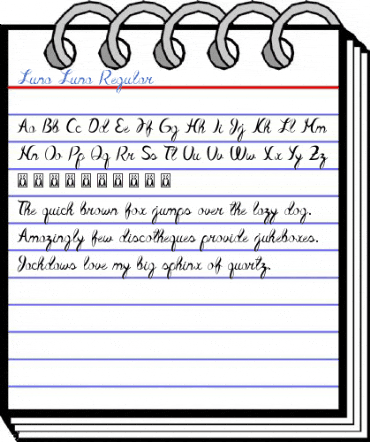 Luna Luna Regular
Aa Bb Cc Dd Ee Ff Gg Hh Ii Jj Kk Ll Mm
Nn Oo Pp Qq Rr Ss Tt Uu Vv Ww Xx Yy Zz
The quick brown fox jumps over the lazy dog.
Amazingly few discotheques provide jukeboxes.
Jackdaws love my big sphinx of quartz.